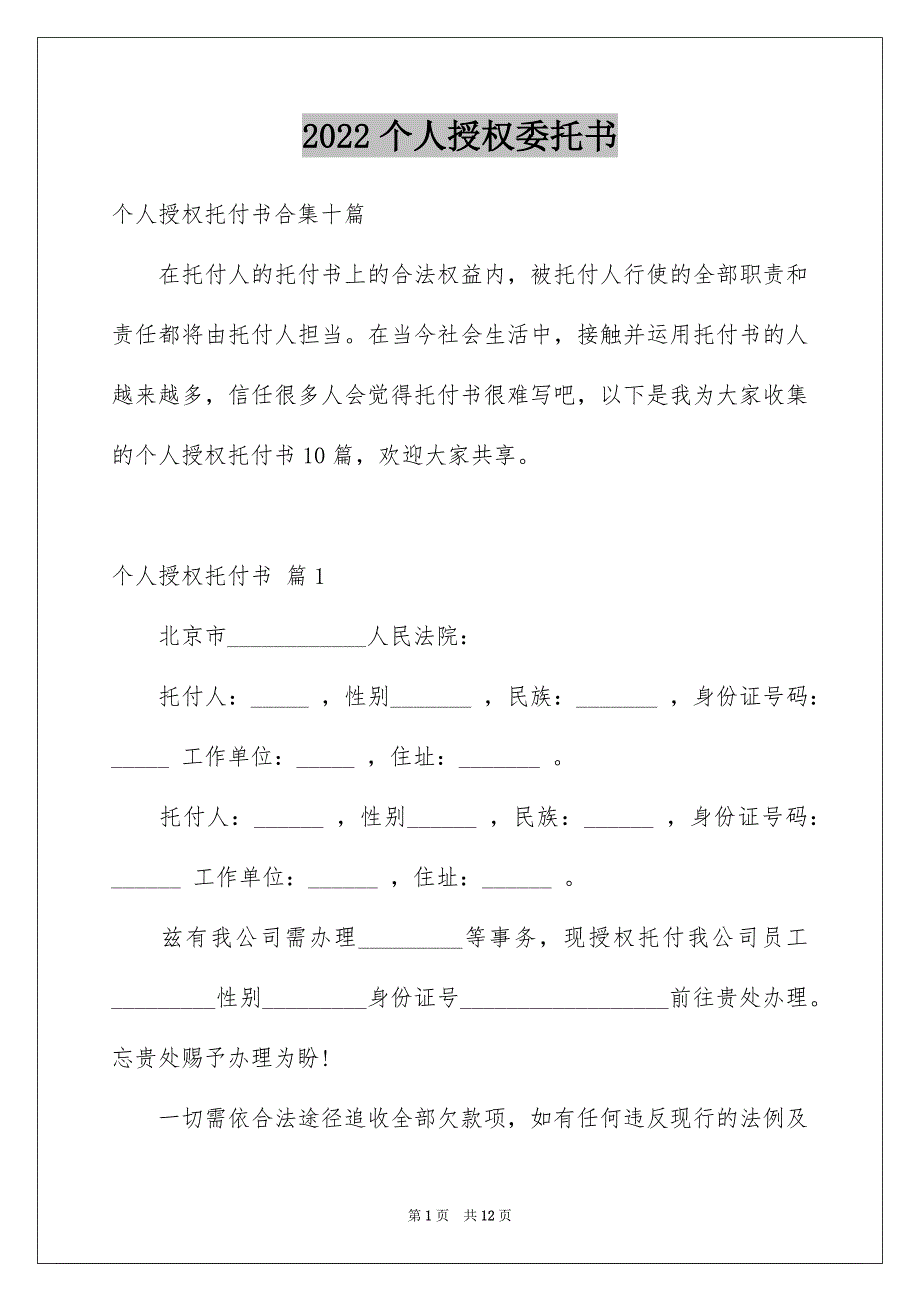 2022个人授权委托书
个人授权托付书合集十篇
在托付人的托付书上的合法权益内，被托付人行使的全部职责和
责任都将由托付人担当。在当今社会生活中，接触并运用托付书的人
越来越多，信任很多人会觉得托付书很难写吧，以下是我为大家收集
的个人授权托付书10篇，欢迎大家共享。
个人授权托付书 篇1
北京市____________人民法院：
托付人：_____ ，性别_______ ，民族：_______ ，身份证号码：
_____ 工作单位：_____ ，住址：_______ 。
托付人：______ ，性别______ ，民族：______ ，身份证号码：
______ 工作单位：______ ，住址：______ 。
兹有我公司需办理_________等事务，现授权托付我公司员工
_________性别_________身份证号__________________前往贵处办理。
忘贵处赐予办理为盼!
一切需依合法途径追收全部欠款项，如有任何违反现行的法例及
第1页 共12页